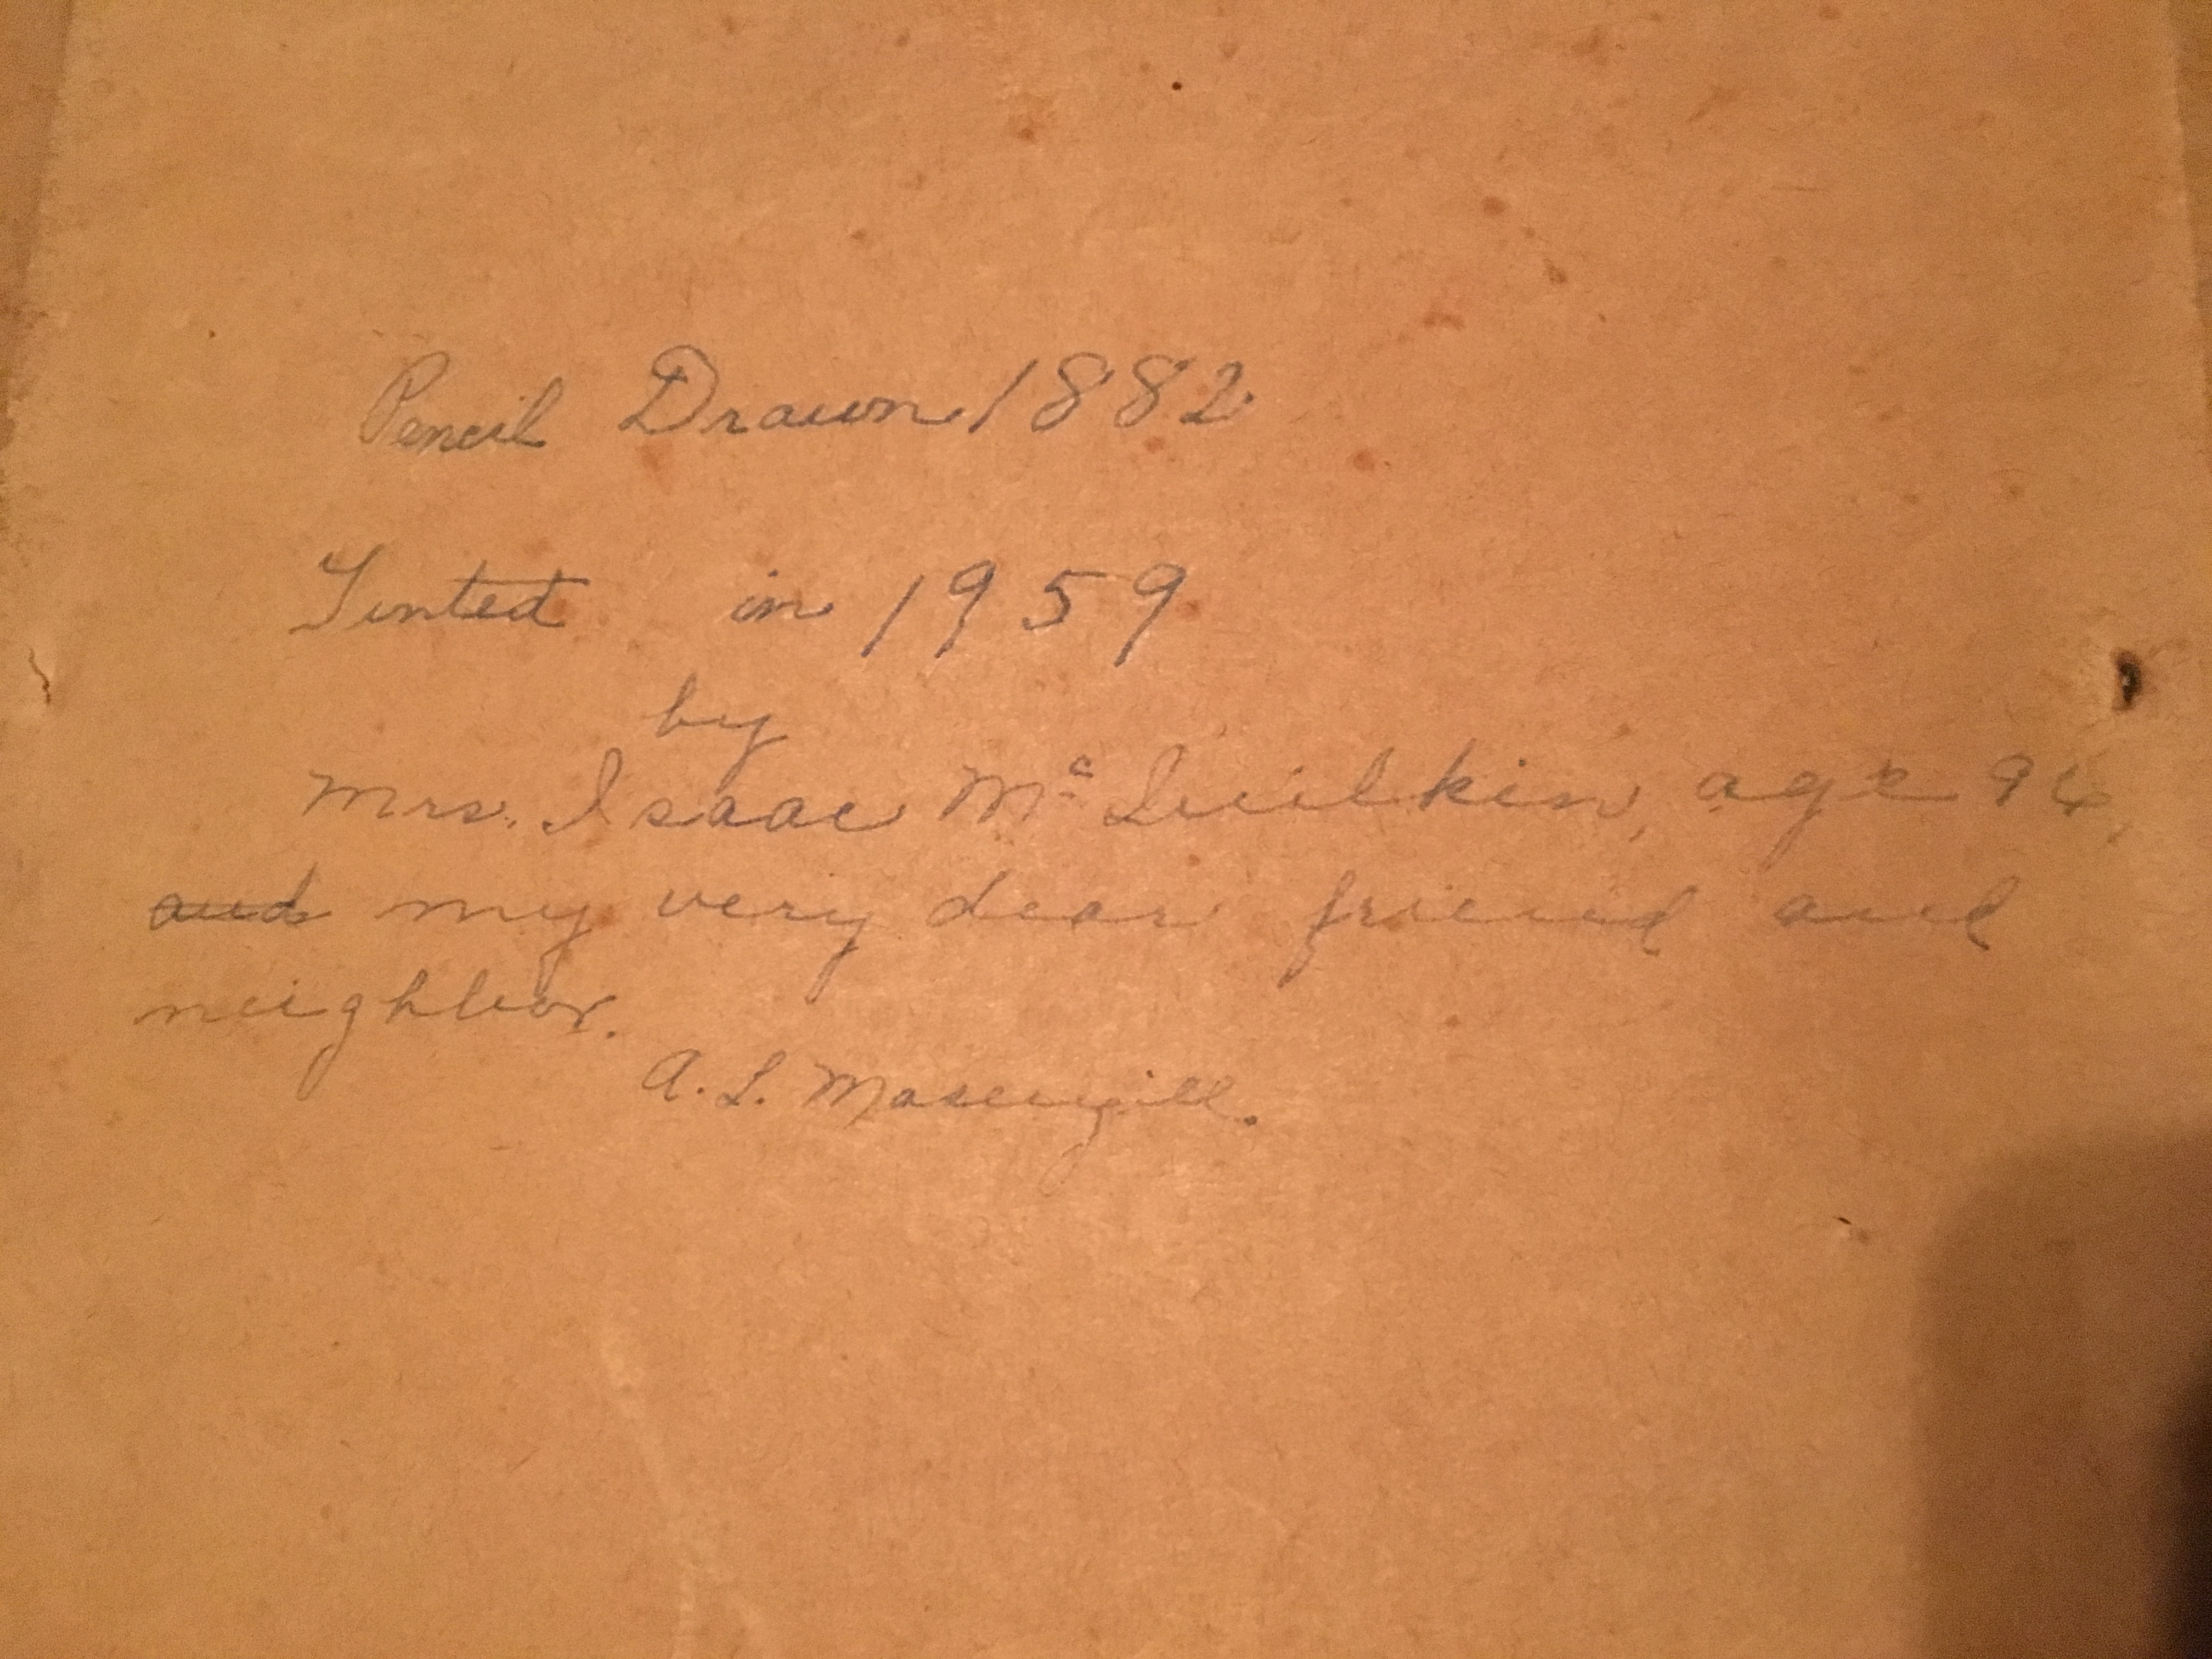 Pencil Drawn 1882
Tinted in 1959
by
Mrs. Isaac Mc Quilkin, age 96,
and my very dear friend and
neighbor.
A. L. Masengill.